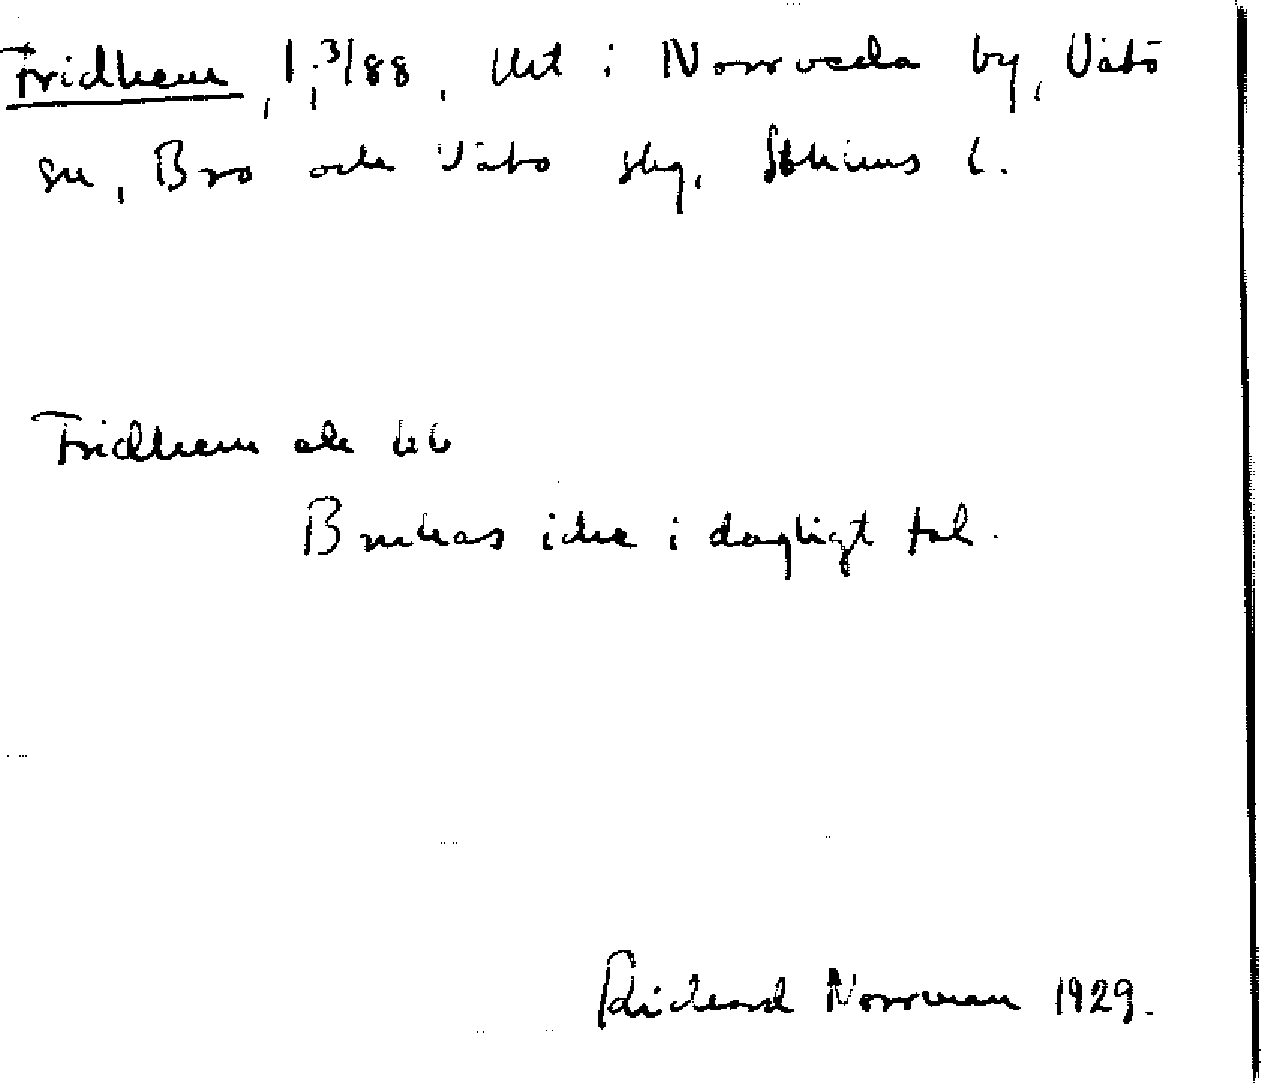 Fridhem, 1, 3/88, lht i Norrveda by, Vätö
sn, Bro och Vätö slg, Sthlms l.
Fridhem ek bb
Brukas icke i dagligt tal.
Richard Norrman 1929.